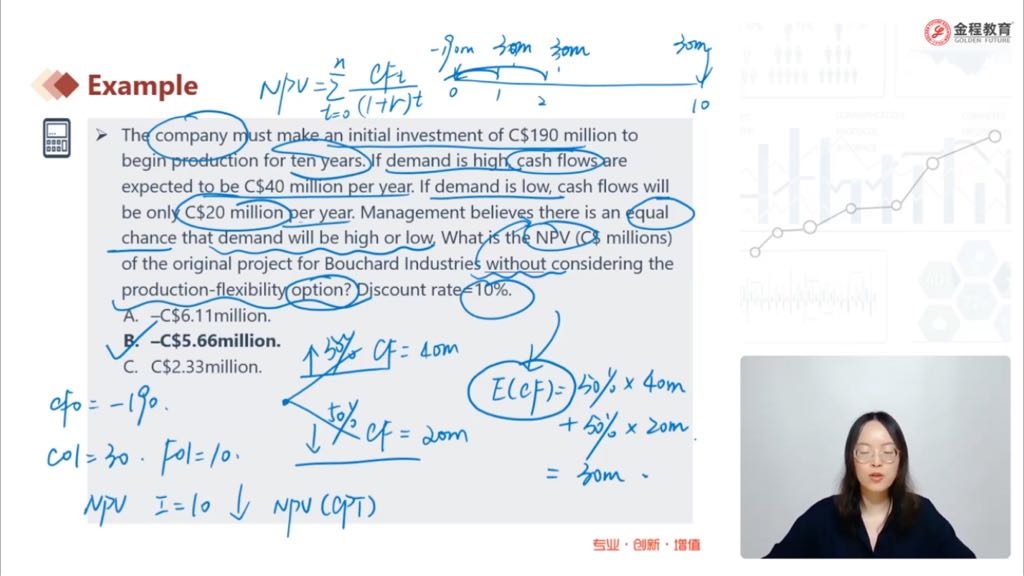 金程教育
GOLDEN FUTURE
-190m 30m 30m 30m
0 1 2 10
NPV = n Σ t=0 CFt / (1+r)t
Example
The company must make an initial investment of C$190 million to
begin production for ten years. If demand is high, cash flows are
expected to be C$40 million per year. If demand is low, cash flows will
be only C$20 million per year. Management believes there is an equal
chance that demand will be high or low. What is the NPV (C$ millions)
of the original project for Bouchard Industries without considering the
production-flexibility option? Discount rate=10%.
A. –C$6.11million.
B. –C$5.66million.
C. C$2.33million.
↑ 50% CF = 40m
50% ↓ CF = 20m
E(CF) = 50% × 40m
+ 50% × 20m.
= 30m.
CF0 = -190.
C01 = 30. F01 = 10.
NPV I = 10 ↓ NPV (CPT)
专业·创新·增值